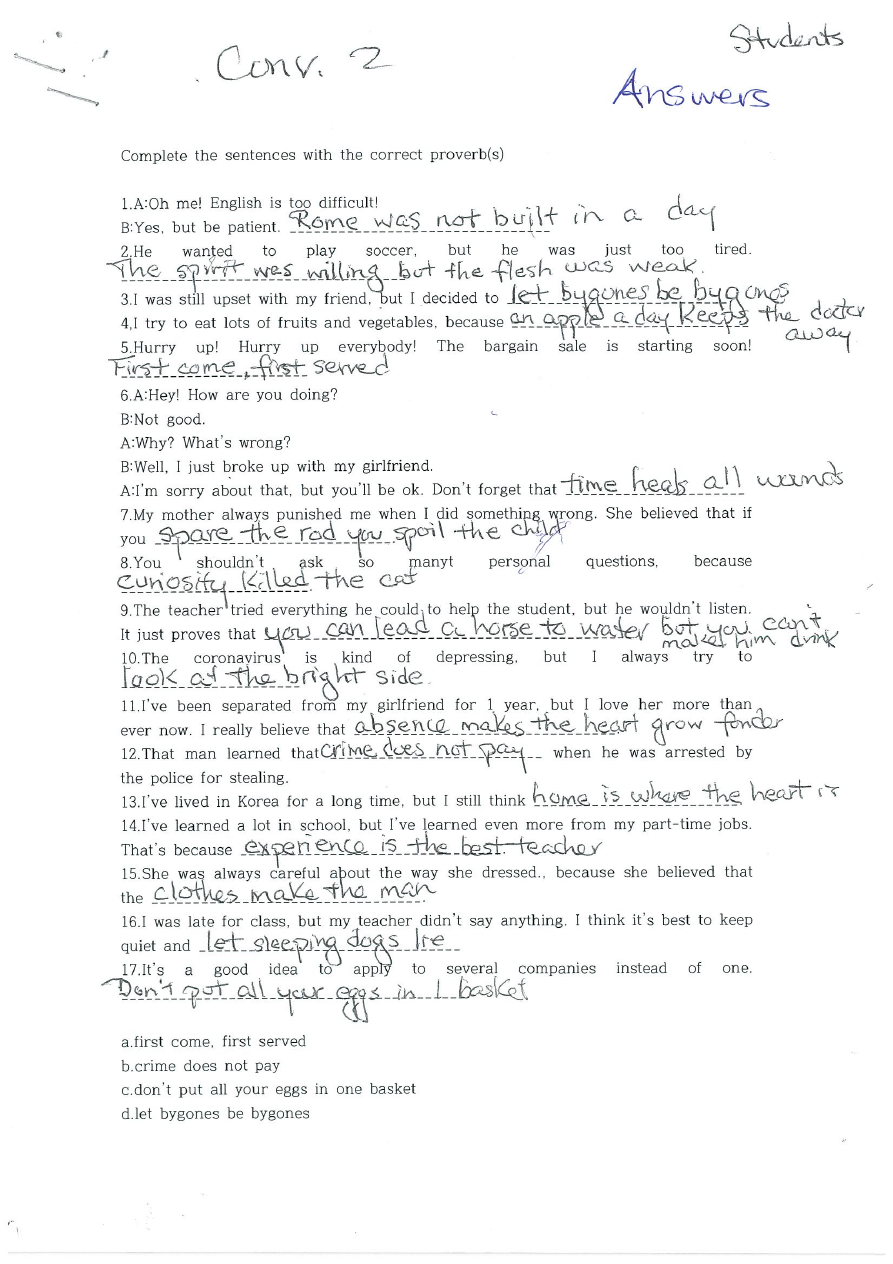 Students
Conv. 2
Answers
Complete the sentences with the correct proverb(s)
1.A:Oh me! English is too difficult!
B:Yes, but be patient. Rome was not built in a day
2.He wanted to play soccer, but he was just too tired.
The spirit was willing but the flesh was weak.
3.I was still upset with my friend, but I decided to let bygones be bygones
4,I try to eat lots of fruits and vegetables, because an apple a day keeps the doctor
away
5.Hurry up! Hurry up everybody! The bargain sale is starting soon!
First come, first served
6.A:Hey! How are you doing?
B:Not good.
A:Why? What's wrong?
B:Well, I just broke up with my girlfriend.
A:I'm sorry about that, but you'll be ok. Don't forget that time heals all wounds
7.My mother always punished me when I did something wrong. She believed that if
you spare the rod you spoil the child
8.You shouldn't ask so manyt personal questions, because
curiosity killed the cat
9.The teacher tried everything he could to help the student, but he wouldn't listen.
It just proves that you can lead a horse to water but you can't
make him drink
10.The coronavirus is kind of depressing, but I always try to
look at the bright side.
11.I've been separated from my girlfriend for 1 year, but I love her more than
ever now. I really believe that absence makes the heart grow fonder
12.That man learned that crime does not pay when he was arrested by
the police for stealing.
13.I've lived in Korea for a long time, but I still think home is where the heart is
14.I've learned a lot in school, but I've learned even more from my part-time jobs.
That's because experience is the best teacher
15.She was always careful about the way she dressed., because she believed that
the clothes make the man
16.I was late for class, but my teacher didn't say anything. I think it's best to keep
quiet and let sleeping dogs lie
17.It's a good idea to apply to several companies instead of one.
Don't put all your eggs in 1 basket
a.first come, first served
b.crime does not pay
c.don't put all your eggs in one basket
d.let bygones be bygones